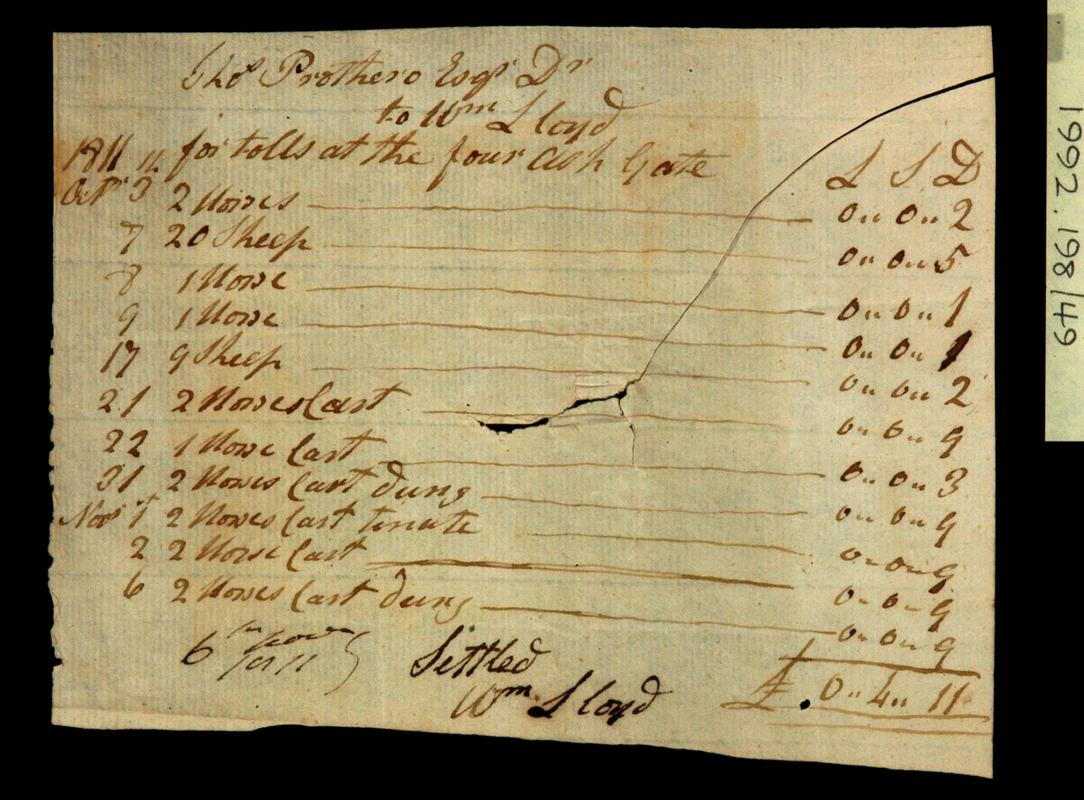 Thos Prothero Esqr Dr
to Wm Lloyd
1811 for tolls at the four ash Gate L S D
Octr 3 2 Horses 0 " 0 " 2
7 20 Sheep 0 " 0 " 5
8 1 Horse 0 " 0 " 1
9 1 Horse 0 " 0 " 1
17 9 Sheep 0 " 0 " 2
21 2 Horses Cart 0 " 0 " 9
22 1 Horse Cart 0 " 0 " 3
31 2 Horses Cart dung 0 " 0 " 9
Novr 1st 2 Horses Cart 0 " 0 " 9
2 2 Horse Cart 0 " 0 " 9
6 2 Horses Cart dung 0 " 0 " 9
6 Settled £ . 0 " 4 " 11
Wm Lloyd
1992.198/49